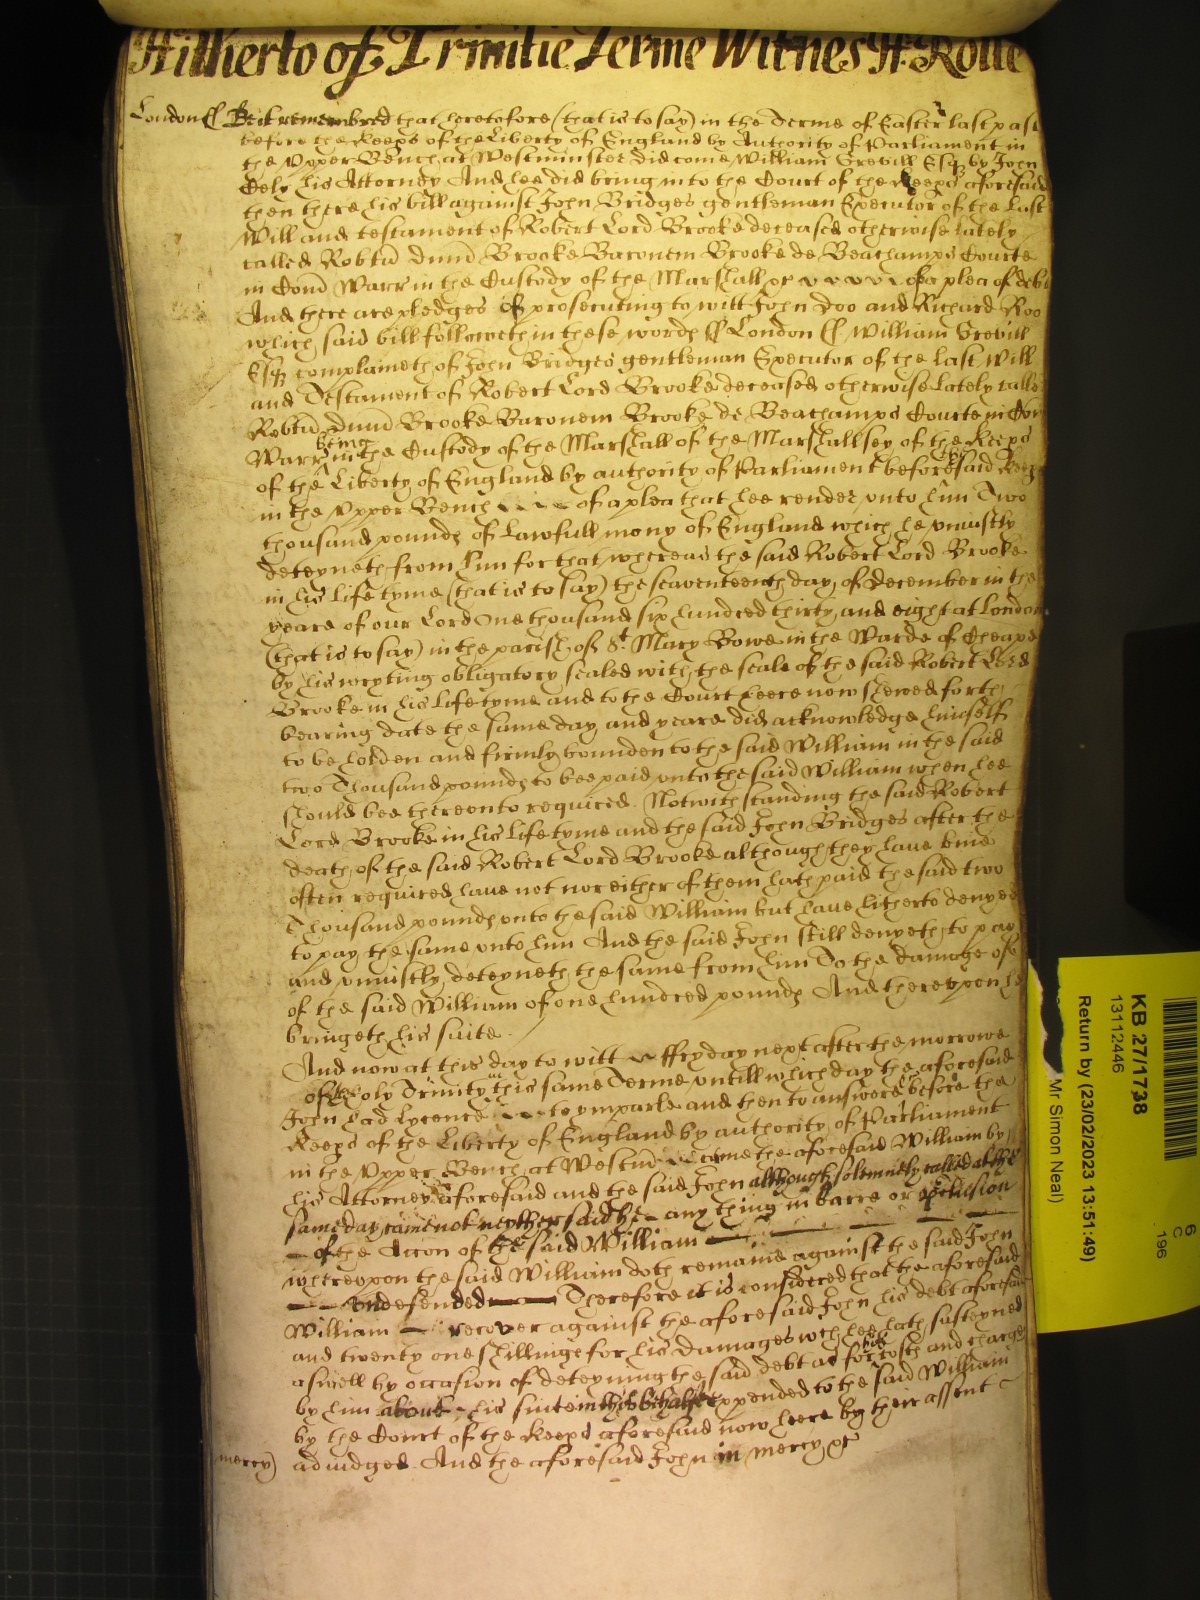 Hitherto of Trinitie Terme Witnes H: Rolle
London ss Be it remembred that heretofore (that is to say) in the Terme of Easter last past
before the Keeps of the Liberty of England by Authority of Parliament in
the Upper Bench at Westminster did come William Grevill Esq by John
Cely his Attorney And hee did bring into the Court of the Keeps aforesaid
then there his bill against John Bridges gentleman Executor of the Last
Will and testament of Robert Lord Brooke deceased otherwise lately
called Robtu dnum Brooke Baronem Brooke de Beachamps Courte
in Com Warr in the Custody of the Marshall &c of a plea of debt
And there are pledges of prosecuting to witt John Doo and Richard Roo
which said bill followeth in these words ss London ss William Grevill
Esq complaineth of John Bridges gentleman Executor of the Last Will
and Testament of Robert Lord Brooke deceased otherwise lately called
Robtu dnum Brooke Baronem Brooke de Beachamps Courte in Com
Warr being in the Custody of the Marshall of the Marshallsey of the Keeps
of the Liberty of England by authority of Parliament before the said Keeps
in the Upper Bench of a plea that hee render unto him Two
thousand pounds of Lawfull mony of England which he uniustly
deteyneth from him for that whereas the said Robert Lord Brooke
in his life tyme (that is to say) the seaventeenth day of December in the
yeare of our Lord One thousand six hundred thirty and eight at London
(that is to say) in the parish of St Mary Bowe in the Warde of Cheape
by his wryting obligatory sealed with the seale of the said Robert Lord
Brooke in his life tyme and to the Court heere now shewed forth
bearing date the same day and yeare did acknowledge himself
to be holden and firmly bounden to the said William in the said
two Thousand pounds to bee paid unto the said William when hee
should bee thereonto required. Notwithstanding the said Robert
Lord Brooke in his life tyme and the said John Bridges after the
death of the said Robert Lord Brooke although they have bine
often required have not nor either of them hath paid the said two
Thousand pounds unto the said William but have hitherto denyed
to pay the same unto him And the said John still denyeth to pay
and uniustly deteyneth the same from him To the damage of
of the said William of one hundred pounds And thereupon he
bringeth his suite
And now at this day to witt ffryday next after the morrowe
of the holy Trinity in this same Terme untill which day the aforesaid
John had lycence to imparle and then to answere &c before the
Keeps of the Liberty of England by authority of Parliament
in the Upper Bench at Westm come the aforesaid William by
his Attorney aforesaid and the said John although solemnely called at the
same day came not neyther said he any thing in barre or preclusion
of the Accon of the said William
whereupon the said William doth remaine against the said John
undefended Therefore it is considered that the aforesaid
William recover against the aforesaid John his debt aforesaid
and twenty one shillings for his damages wch hee hath susteyned
aswell by occasion of deteyning the said debt as for his costs and charges
by him about his suite in this behalfe expended to the said William
by the Court of the Keeps aforesaid now heere by their assent
mercy) adiudged. And the aforesaid John in mercy &c
KB 27/1738
13112446
Return by (23/02/2023 13:51:49)
Mr Simon Neal)
6
C
196